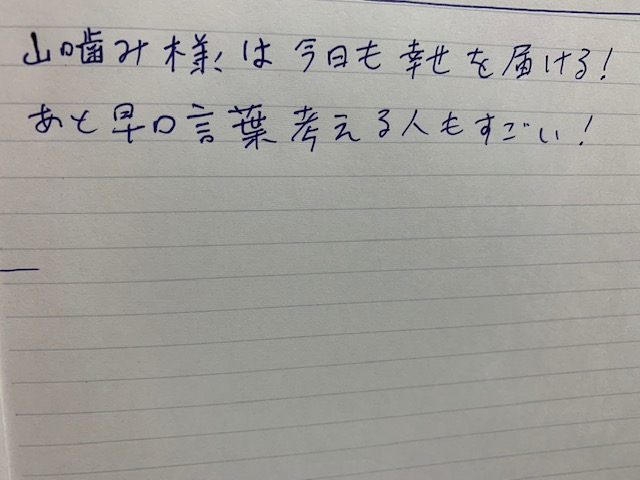 山噛み様は今日も幸せを届ける!
あと早口言葉考える人もすごい!